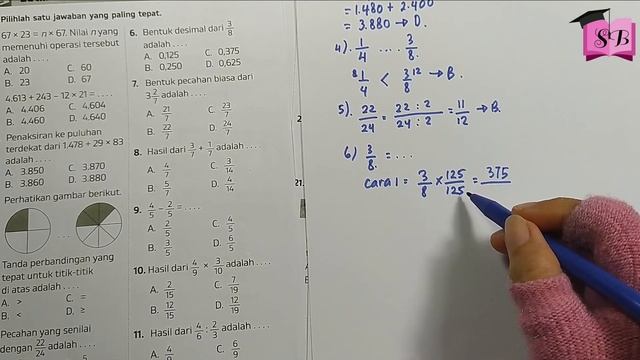 Pilihlah satu jawaban yang paling tepat.
67 × 23 = n × 67. Nilai n yang
memenuhi operasi tersebut
adalah . . . .
A. 20 C. 60
B. 23 D. 67
4.613 + 243 – 12 × 21 = . . . .
A. 4.406 C. 4.604
B. 4.460 D. 4.640
Penaksiran ke puluhan
terdekat dari 1.478 + 29 × 83
adalah . . . .
A. 3.850 C. 3.870
B. 3.860 D. 3.880
Perhatikan gambar berikut.
. . . .
Tanda perbandingan yang
tepat untuk titik-titik
di atas adalah . . . .
A. > C. =
B. < D. ≥
Pecahan yang senilai
dengan 22/24 adalah . . . .
6. Bentuk desimal dari 3/8
adalah . . . .
A. 0,125 C. 0,375
B. 0,250 D. 0,625
7. Bentuk pecahan biasa dari
3 2/7 adalah . . . .
A. 21/7 C. 23/7
B. 22/7 D. 24/7
8. Hasil dari 3/7 + 1/7 adalah . . . .
A. 4/7 C. 3/14
B. 5/7 D. 4/14
9. 4/5 – 2/5 = . . . .
A. 2/5 C. 4/5
B. 3/5 D. 6/5
10. Hasil dari 4/9 × 3/10 adalah . . . .
A. 2/15 C. 7/19
B. 12/15 D. 12/19
11. Hasil dari 4/6 : 2/3 adalah . . . .
A. 4/9 C. 6/9
2
21.
= 1.480 + 2.400
= 3.880 → D.
4). 1/4 .... 3/8.
8 1/4 < 3/8 12 → B.
5). 22/24 = 22 : 2/24 : 2 = 11/12 → B.
6) 3/8. = ...
cara 1 = 3/8 × 125/125 = 375
SB